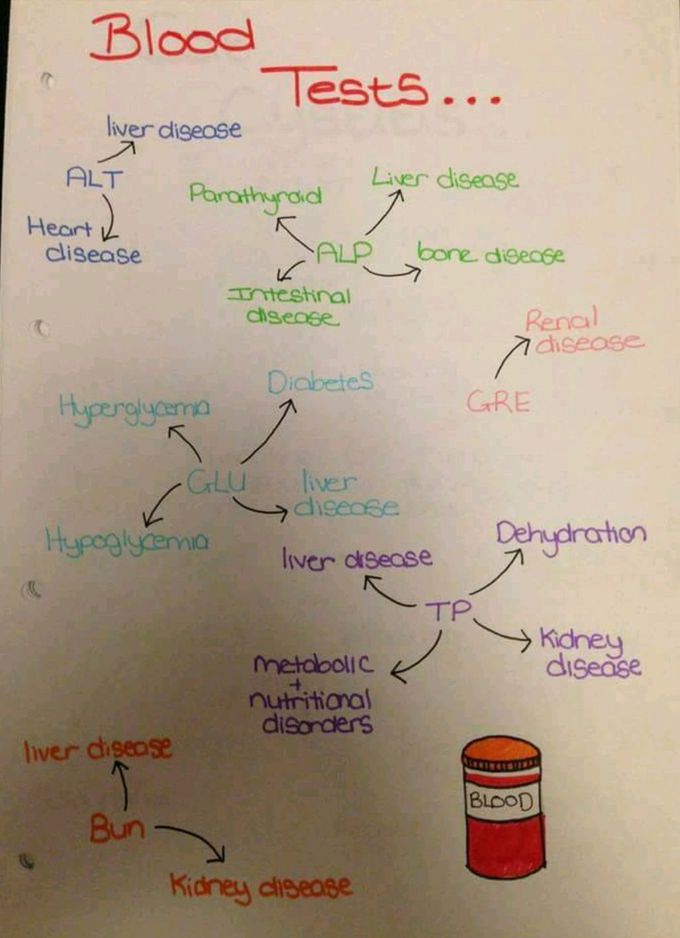 Blood
Tests...
liver disease
ALT
Heart
disease
Parathyroid
Liver disease
ALP
bone disease
Intestinal
disease
Renal
disease
GRE
Diabetes
Hyperglycemia
GLU
liver
disease
Hypoglycemia
liver disease
Dehydration
TP
Kidney
disease
metabolic
+
nutritional
disorders
liver disease
Bun
Kidney disease
BLOOD